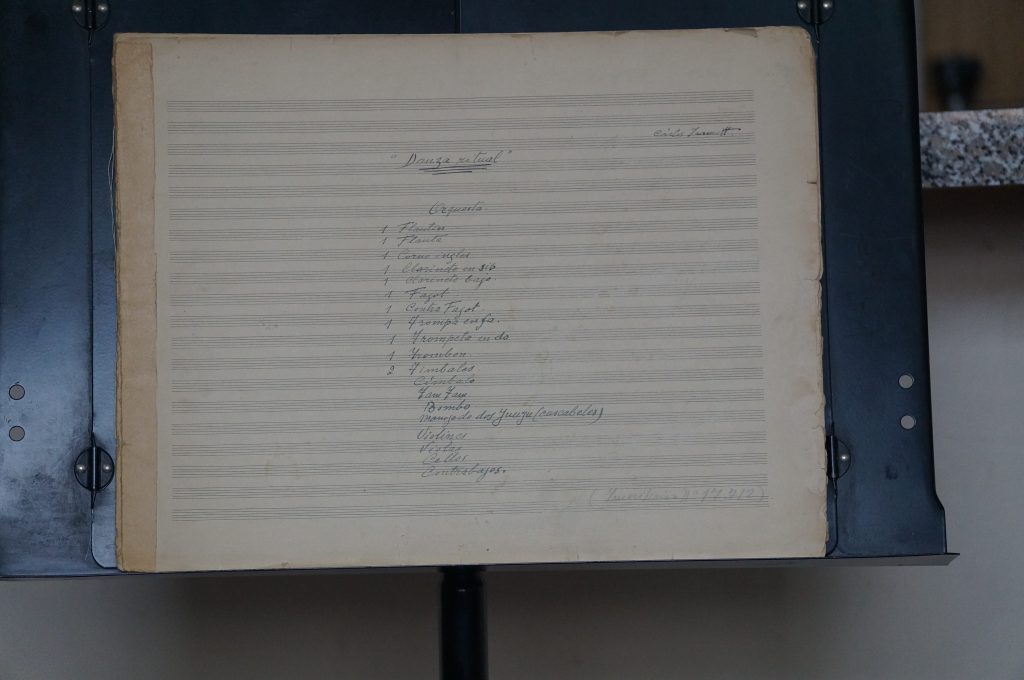 Carlos
"Danza ritual"
Orquesta
1 Flautin
1 Flauta
1 Corno ingles
1 Clarinete en sib
1 Clarinete bajo
1 Fagot
1 Contra Fagot
1 Trompa en fa.
1 Trompeta en do
1 Trombon
2 Timbales
Címbalo
Tam Tam
Bombo
Manojo de (cascabeles)
Violines
Violas
Cellos
Contrabajos.